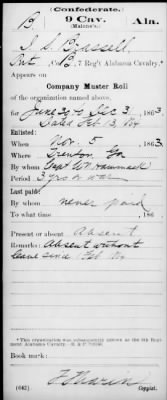 (Confederate.)
B 9 Cav. Ala.
(Malone's.)
J. S. Brassell
Pvt, Co. B, 7 Reg't Alabama Cavalry.*
Appears on
Company Muster Roll
of the organization named above,
for June 30 to Dec 31, 1863.
dated Feb 13, 1864
Enlisted:
When Nov. 5, 1863.
Where Trenton, Ga
By whom Capt W
Period 3 yrs or war
Last paid:
By whom never paid
To what time , 186 .
Present or absent Absent
Remarks: Absent without
leave since 1 Feb /64
*This organization was subsequently known as the 9th Regiment Alabama Cavalry.
Book mark:
(642) Copyist.